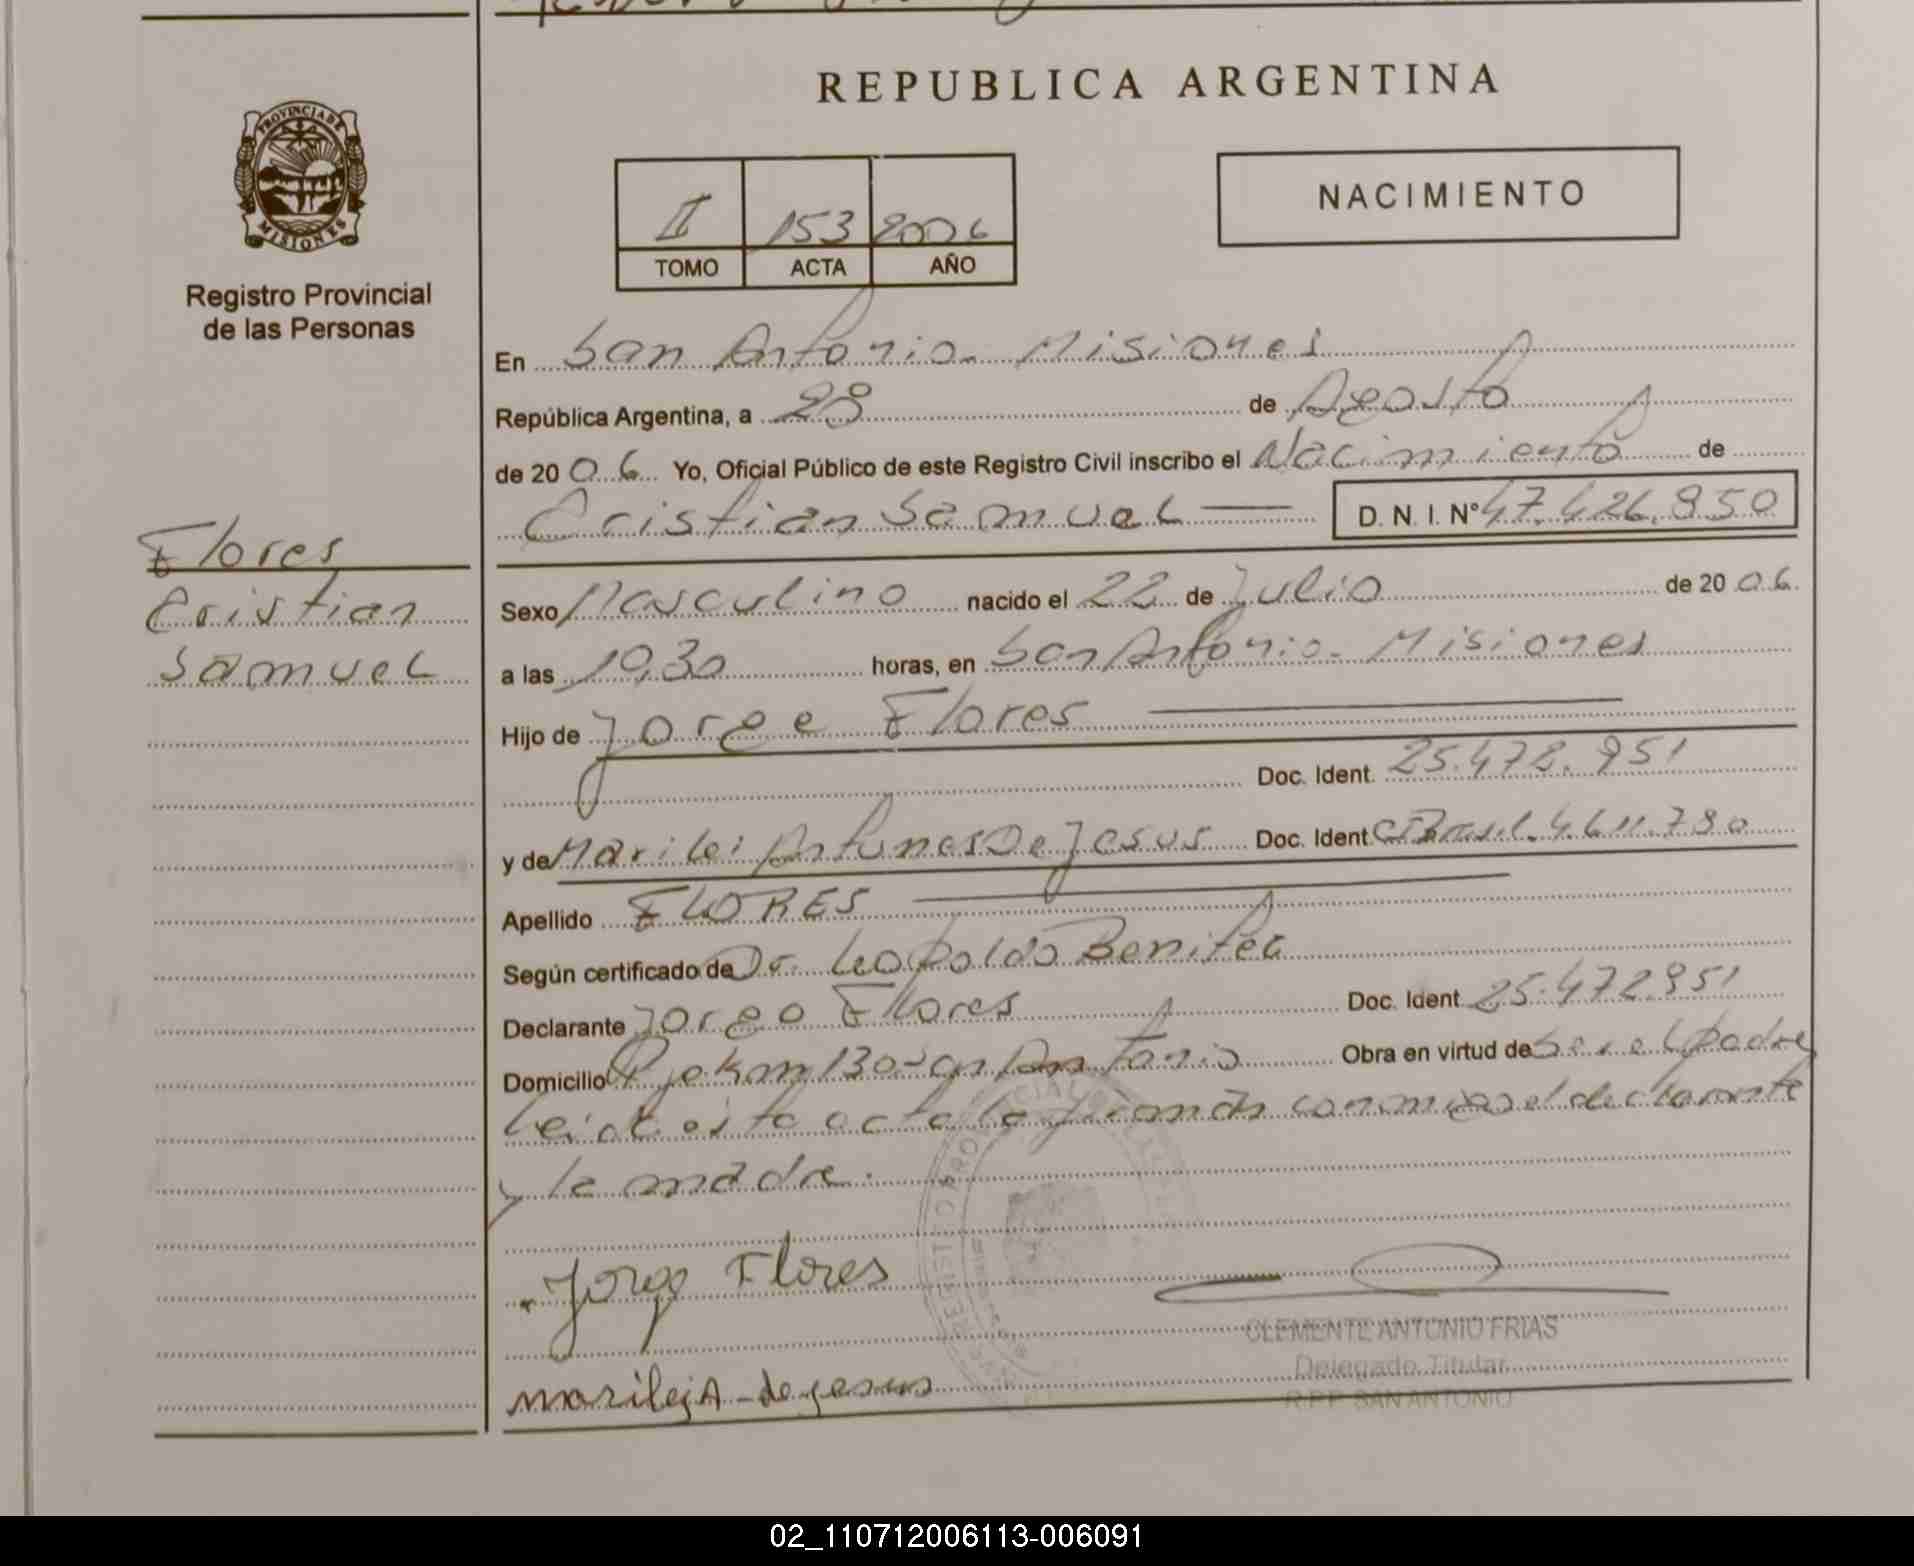 REPUBLICA ARGENTINA
PROVINCIA DE MISIONES
Registro Provincial
de las Personas
II 153 2006
TOMO ACTA AÑO
NACIMIENTO
En San Antonio - Misiones
República Argentina, a 28 de Agosto
de 2006. Yo, Oficial Público de este Registro Civil inscribo el Nacimiento de
Cristian Samuel D. N. I. Nº 47.426.850
Flores
Cristian
Samuel
Sexo Masculino nacido el 22 de Julio de 2006.
a las 10,30 horas, en San Antonio - Misiones
Hijo de Jorge Flores
Doc. Ident. 25.472.951
y de Marilei Antunes De Jesus Doc. Ident CI Brasil. 4.611.780
Apellido FLORES
Según certificado de Dr. Leopoldo Benitez
Declarante Jorge Flores Doc. Ident 25.472.951
Domicilio Pje Km 130 - San Antonio Obra en virtud de Ser el padre
Leida esta acta la firman conmigo el declarante
y la madre.
Jorge Flores
CLEMENTE ANTONIO FRIAS
Delegado Titular
R.P.P. SAN ANTONIO
marilei A - de jesus
02_110712006113-006091